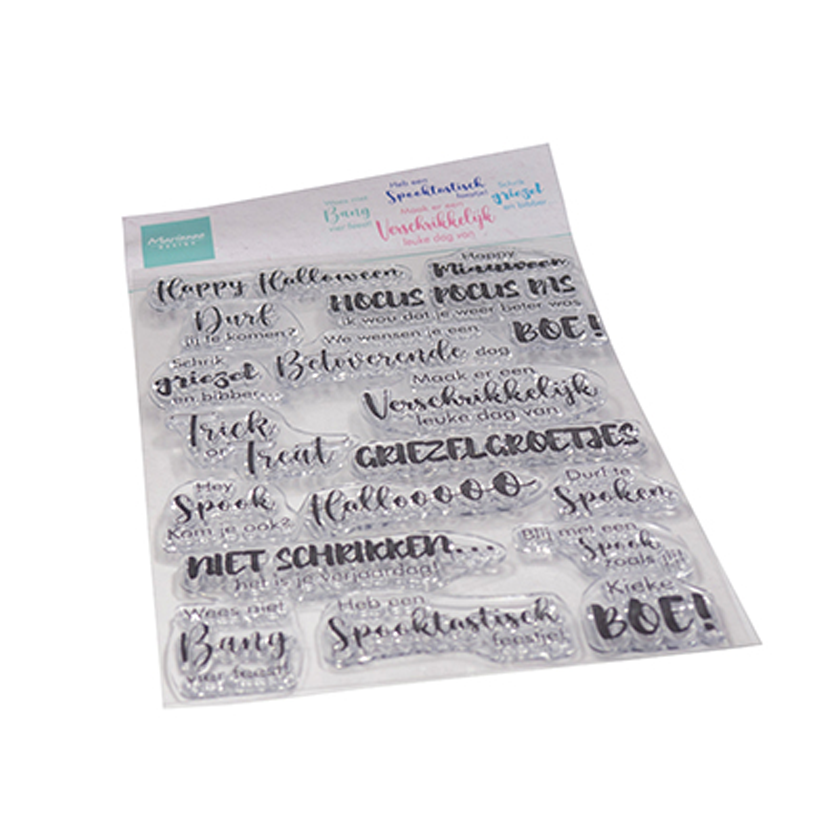 Marianne
DESIGN
Wees niet
Bang
vier feest!
Heb een
Spooktastisch
feestje!
Maak er een
Verschrikkelijk
leuke dag van
Schrik
griezel
en bibber...
Happy Halloween
Happy
Miauwoen
HOCUS POCUS PAS
ik wou dat je weer beter was
Durf
jij te komen?
We wensen je een
Betoverende dag
BOE!
Schrik
griezel
en bibber...
Maak er een
Verschrikkelijk
leuke dag van
Trick
or Treat
GRIEZELGROETJES
Hey
Spook
Kom je ook?
Hallooooo
Durf te
Spoken
NIET SCHRIKKEN...
het is je verjaardag!
Blijf met een
Spook
zoals jij!
Wees niet
Bang
vier feest!
Heb een
Spooktastisch
feestje!
Kieke
BOE!